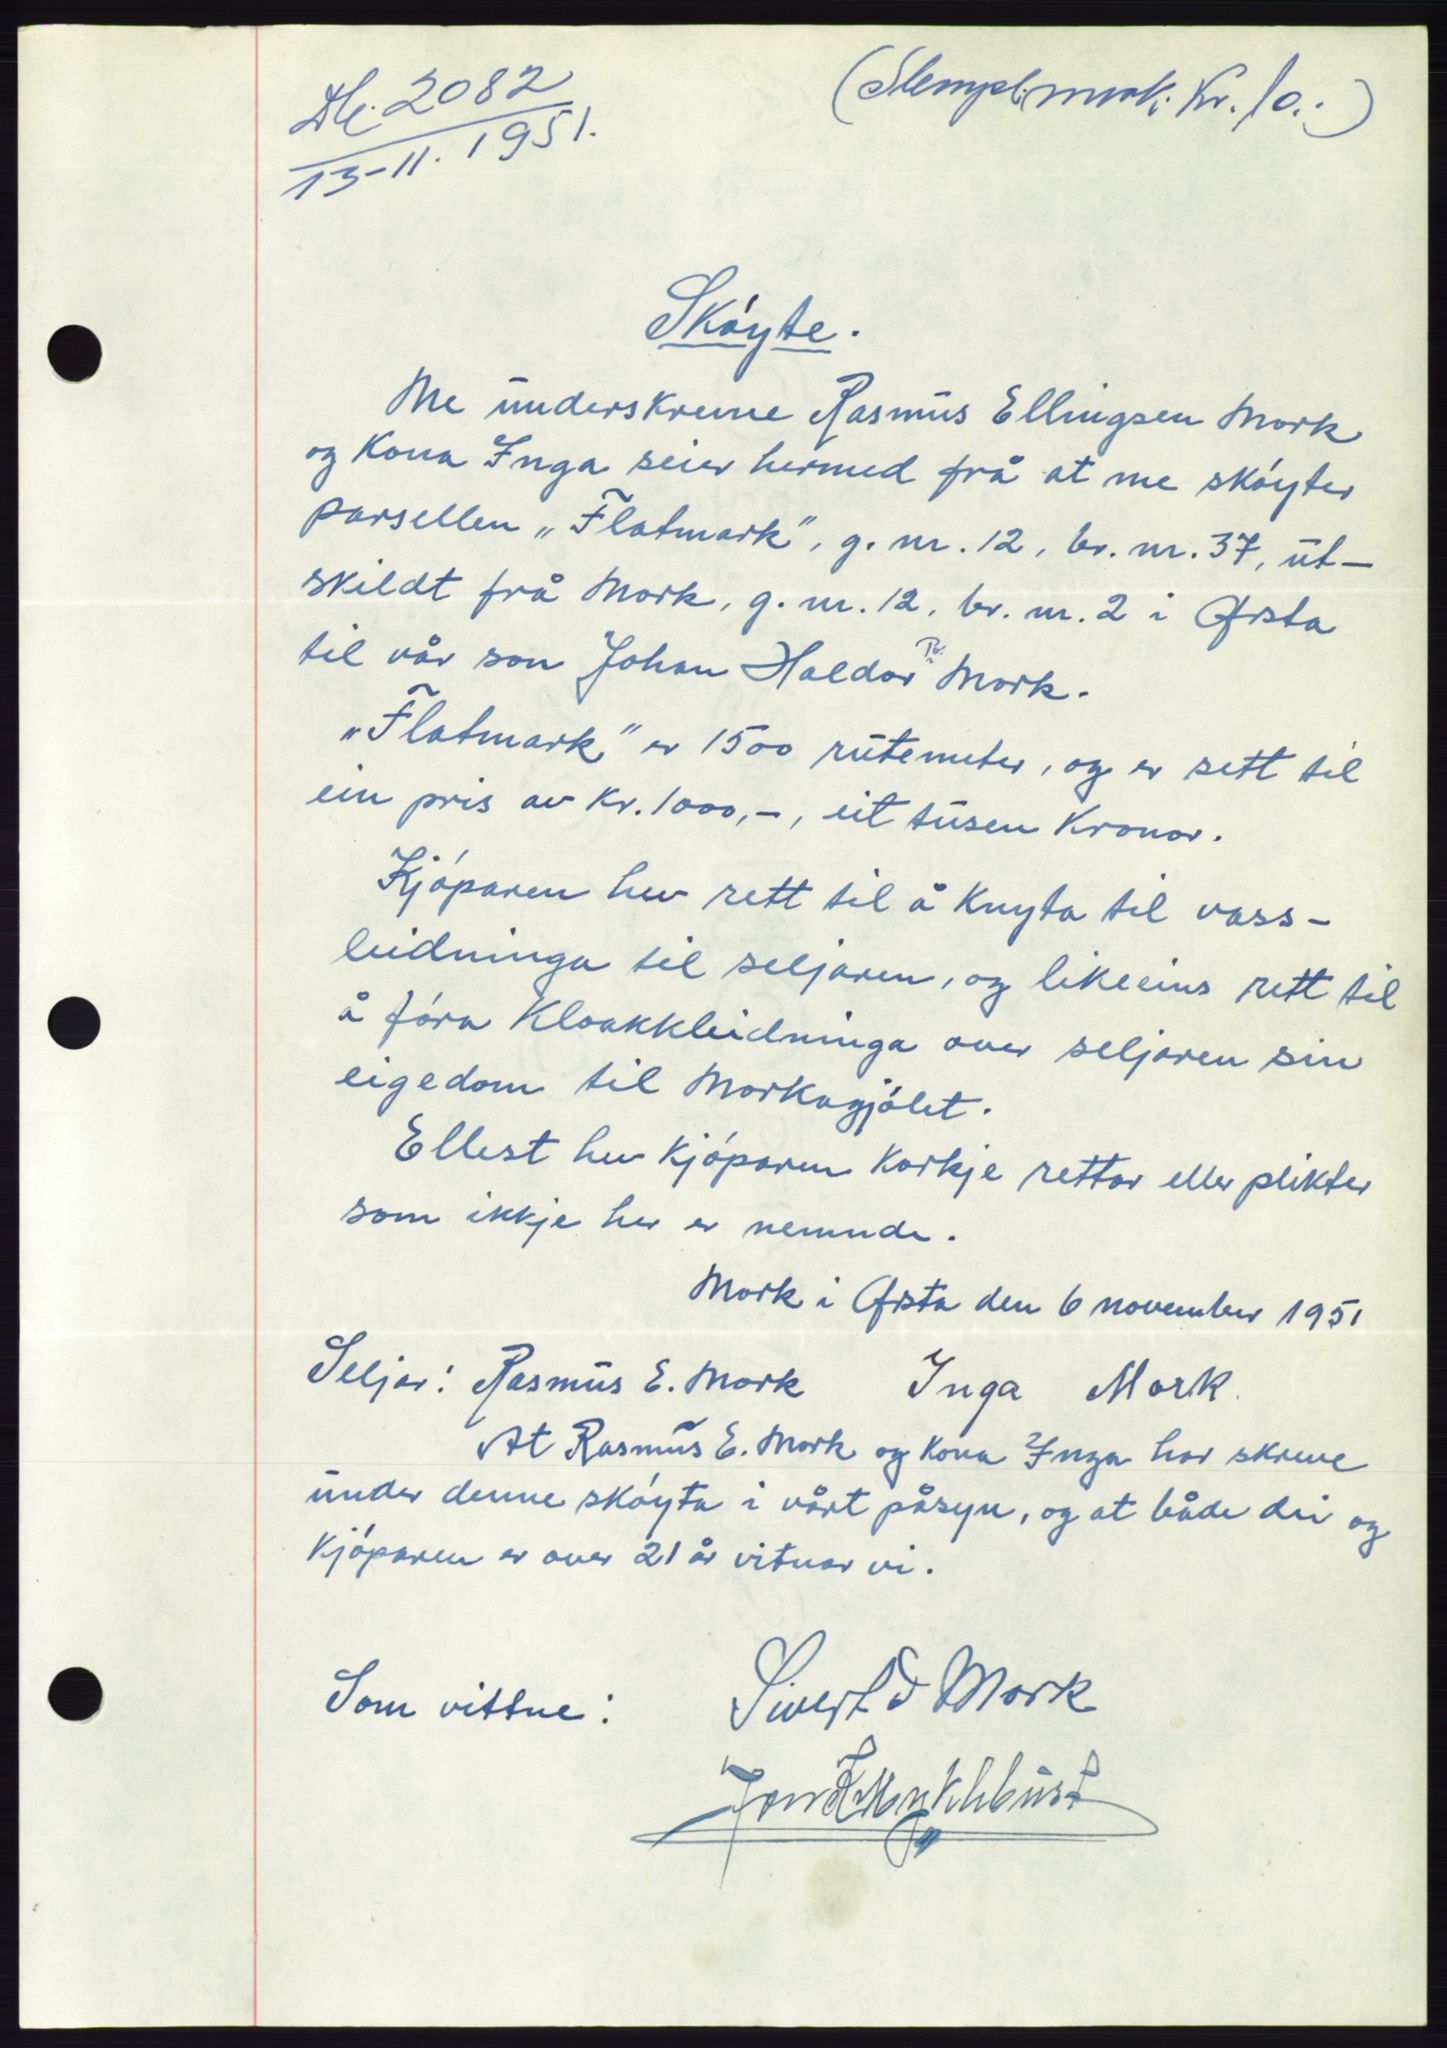 Db. 2082
13-11. 1951.
(Stempelmerk: Kr. 10.-)
Skóyte.
Me underskreve Rasmus Ellingsen Mork
og Kona Inga seier hermed frå at me skóyter
parsellen „Flatmark", g. nr. 12, br. nr. 37, ut-
skildt frå Mork, g. nr. 12, br. nr. 2 i Ørsta
til vår son Johan Haldor R. Mork.
„Flatmark" er 1500 rutemeter, og er sett til
ein pris av Kr. 1000,-, eit tusen Kronor.
Kjóparen hev rett til å Knyta til vass-
leidninga til seljaren, og likeeins rett til
å fóra Kloakkleidninga over seljaren sin
eigedom til Morkagjólet.
Ellest hev Kjóparen Korkje rettar eller plikter
som ikkje her er nemnde.
Mork i Ørsta den 6 november 1951
Seljar: Rasmus E. Mork Inga Mork.
At Rasmus E. Mork og Kona Inga har skreve
under denne skóyta i vårt påsyn, og at både dei og
Kjóparen er over 21 år vitnar vi.
Som vittne: Sivert d Mork
Jon R Myklebust